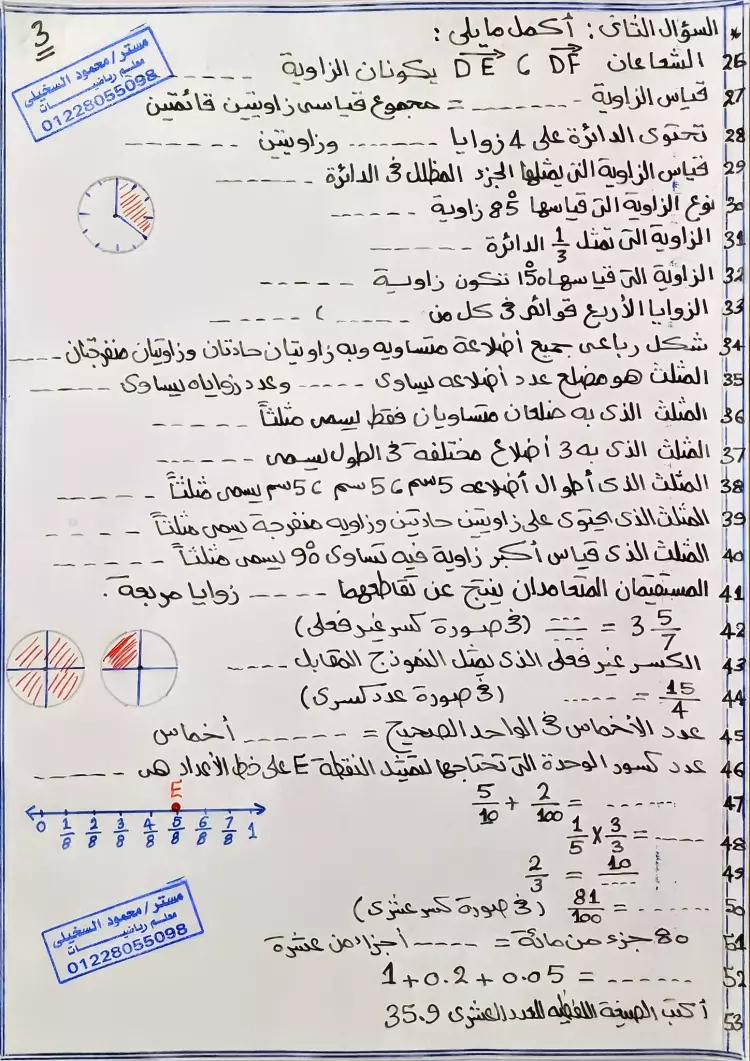 3
* السؤال الثانى : أكمل ما يلى :
مستر / محمود السخيلى
معلم رياضيـــات
01228055098
26 الشعاعان DF ، DE يكونان الزاوية -----
27 قياس الزاوية ------- = مجموع قياسى زاويتين قائمتين
28 تحتوى الدائرة على 4 زوايا ------- وزاويتين ------
29 قياس الزاوية التى يمثلها الجزء المظلل فى الدائرة ------
30 نوع الزاوية التى قياسها 85° زاوية -----
31 الزاوية التى تمثل 1/3 الدائرة -----
32 الزاوية التى قياسها 150° تكون زاوية -----
33 الزوايا الأربع قوائم فى كل من ----- ، -----
34 شكل رباعى جميع أضلاعة متساويه وبه زاويتان حادتان وزاويتان منفرجتان ----
35 المثلث هو مضلع عدد أضلاعه يساوى ----- وعدد زواياه يساوى -----
36 المثلث الذى به ضلعان متساويان فقط يسمى مثلثاً -----
37 المثلث الذى به 3 أضلاع مختلفة فى الطول يسمى -----
38 المثلث الذى أطوال أضلاعه 5سم ، 5سم ، 5سم يسمى مثلثاً -----
39 المثلث الذى يحتوى على زاويتين حادتين وزاويه منفرجة يسمى مثلثاً ----
40 المثلث الذى قياس أكبر زاوية فيه تساوى 90° يسمى مثلثاً -----
41 المستقيمان المتعامدان ينتج عن تقاطعهما ---- زوايا مربعة .
42 3 5/7 = ---/--- (فى صورة كسر غير فعلى)
43 الكسر غير فعلى الذى يمثل النموذج المقابل ----
44 15/4 = ----- (فى صورة عدد كسرى)
45 عدد الأخماس فى الواحد الصحيح = ------ أخماس
46 عدد كسور الوحدة التى تحتاجها لتمثيل النقطة E على خط الأعداد هى -----
E
0 1/8 2/8 3/8 4/8 5/8 6/8 7/8 1
47 5/10 + 2/100 = ------
48 1/5 × 3/3 = ----
49 2/3 = 10/----
50 81/100 = ------ (فى صورة كسر عشرى)
51 80 جزء من مائة = ----- أجزاء من عشرة
52 1 + 0.2 + 0.05 = ------
53 أكتب الصيغة اللفظيه للعدد العشرى 35.9
مستر / محمود السخيلى
معلم رياضيـــات
01228055098